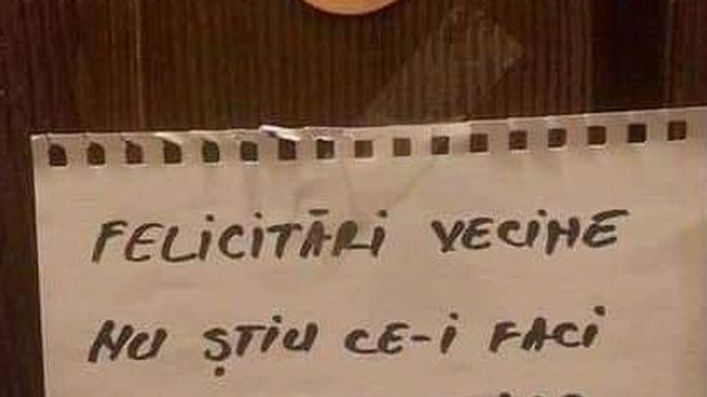 FELiCiTĂRi VECiNE
NU ȘTiU CE-i FACi